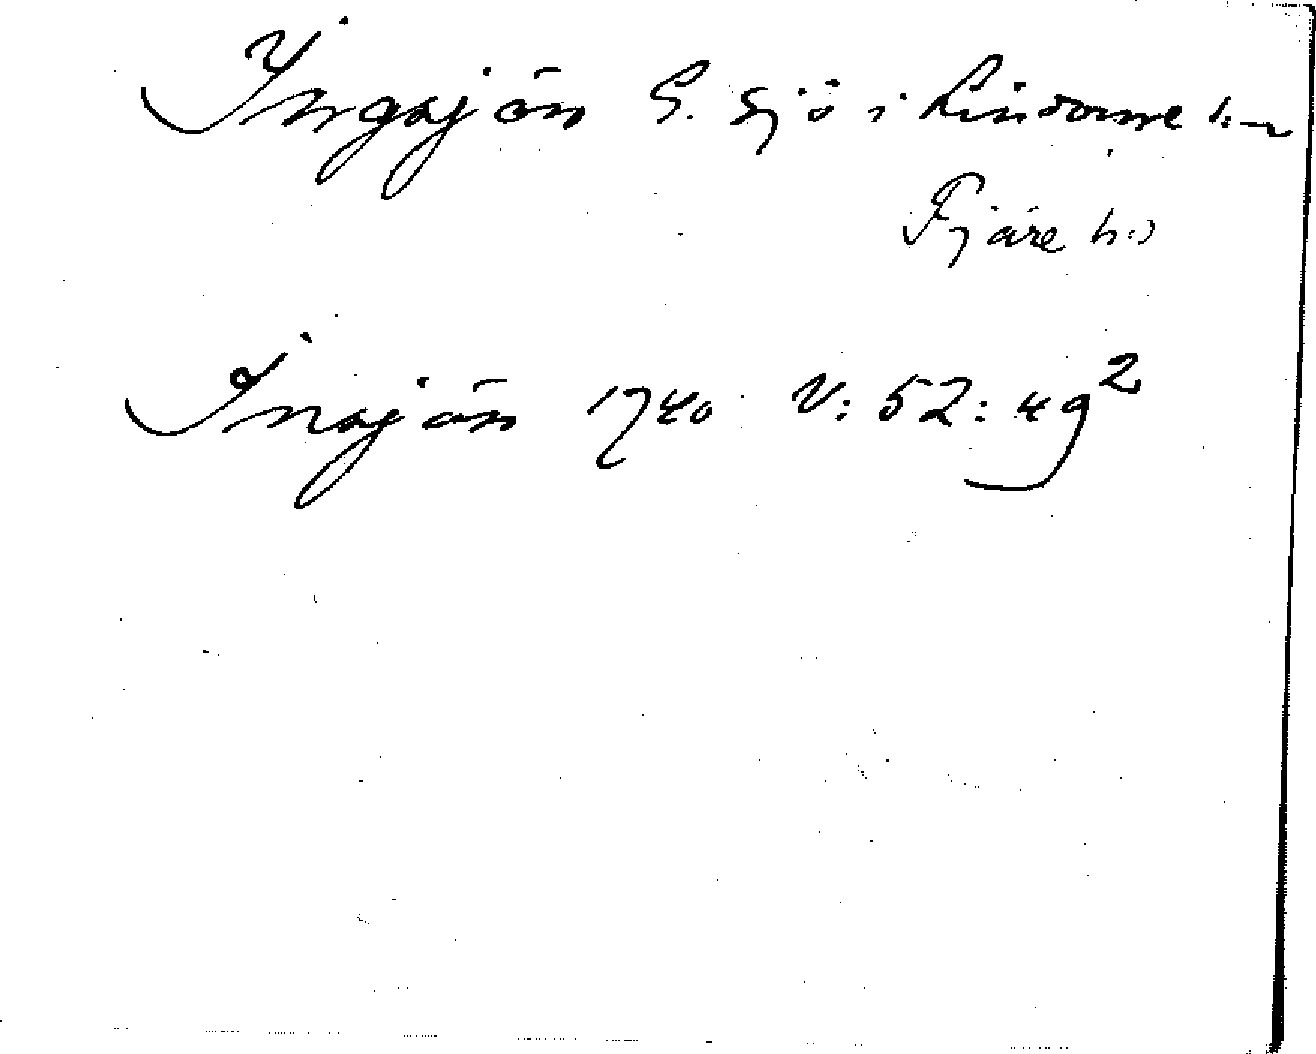 Ingasjön S. Sjö i Lindome sn
Fjäre hd
Inasjön 1740 V: 52: 49²